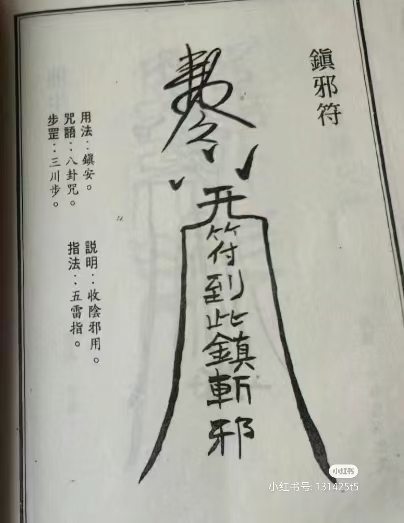 鎮邪符
符到此鎮斬邪
用法：鎮安。
咒語：八卦咒。
步罡：三川步。
說明：收陰邪用。
指法：五雷指。
小红书
小红书号: 131425t5